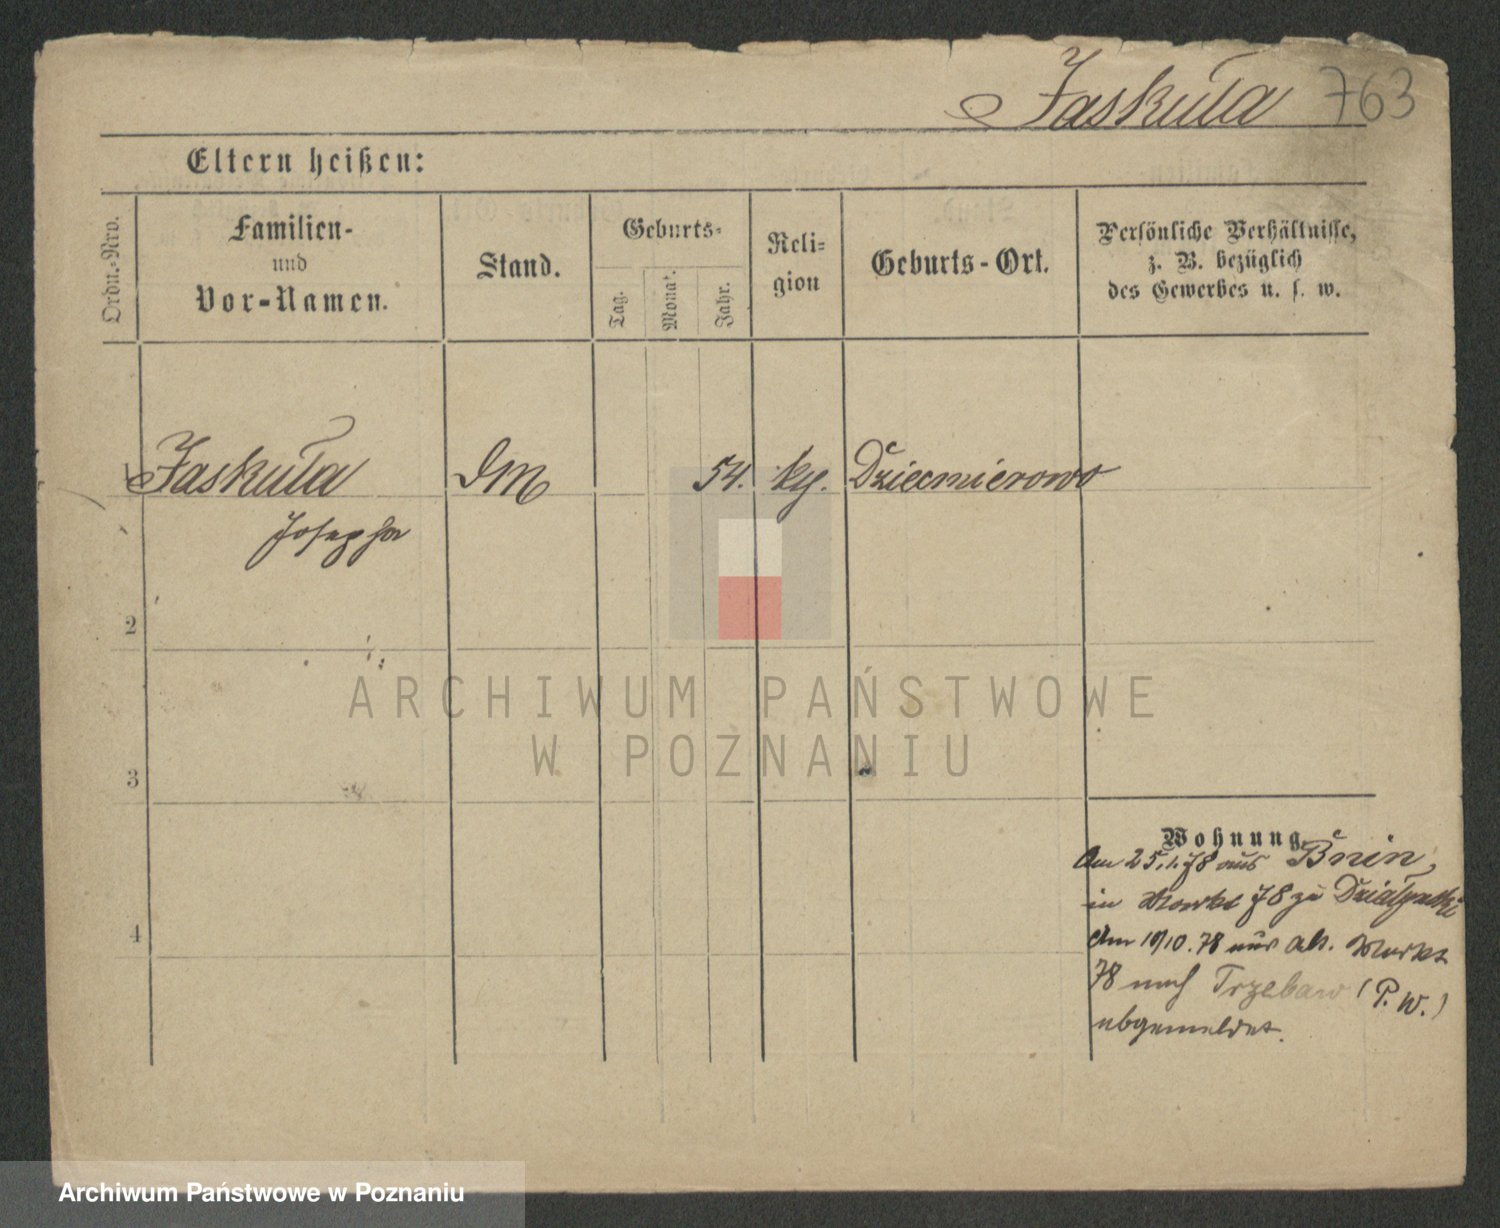 Jaskuła 763
Eltern heißen:
Ordn.-Nro.
Familien-
und
Vor-Namen.
Stand.
Geburts-
Tag.
Monat.
Jahr.
Reli-
gion
Geburts-Ort.
Persönliche Verhältnisse,
z. B. bezüglich
des Gewerbes u. s. w.
1 Jaskuła DM 54. kg. Dziecmierowo
Josepha
2
3
4
Wohnung
Am 25.1.78 aus Bnin,
in Markt 78 zu
Am 10/10. 78 aus Alt. Markt
78 nach Trzebaw (P. W.)
abgemeldet.
ARCHIWUM PAŃSTWOWE
W POZNANIU
Archiwum Państwowe w Poznaniu